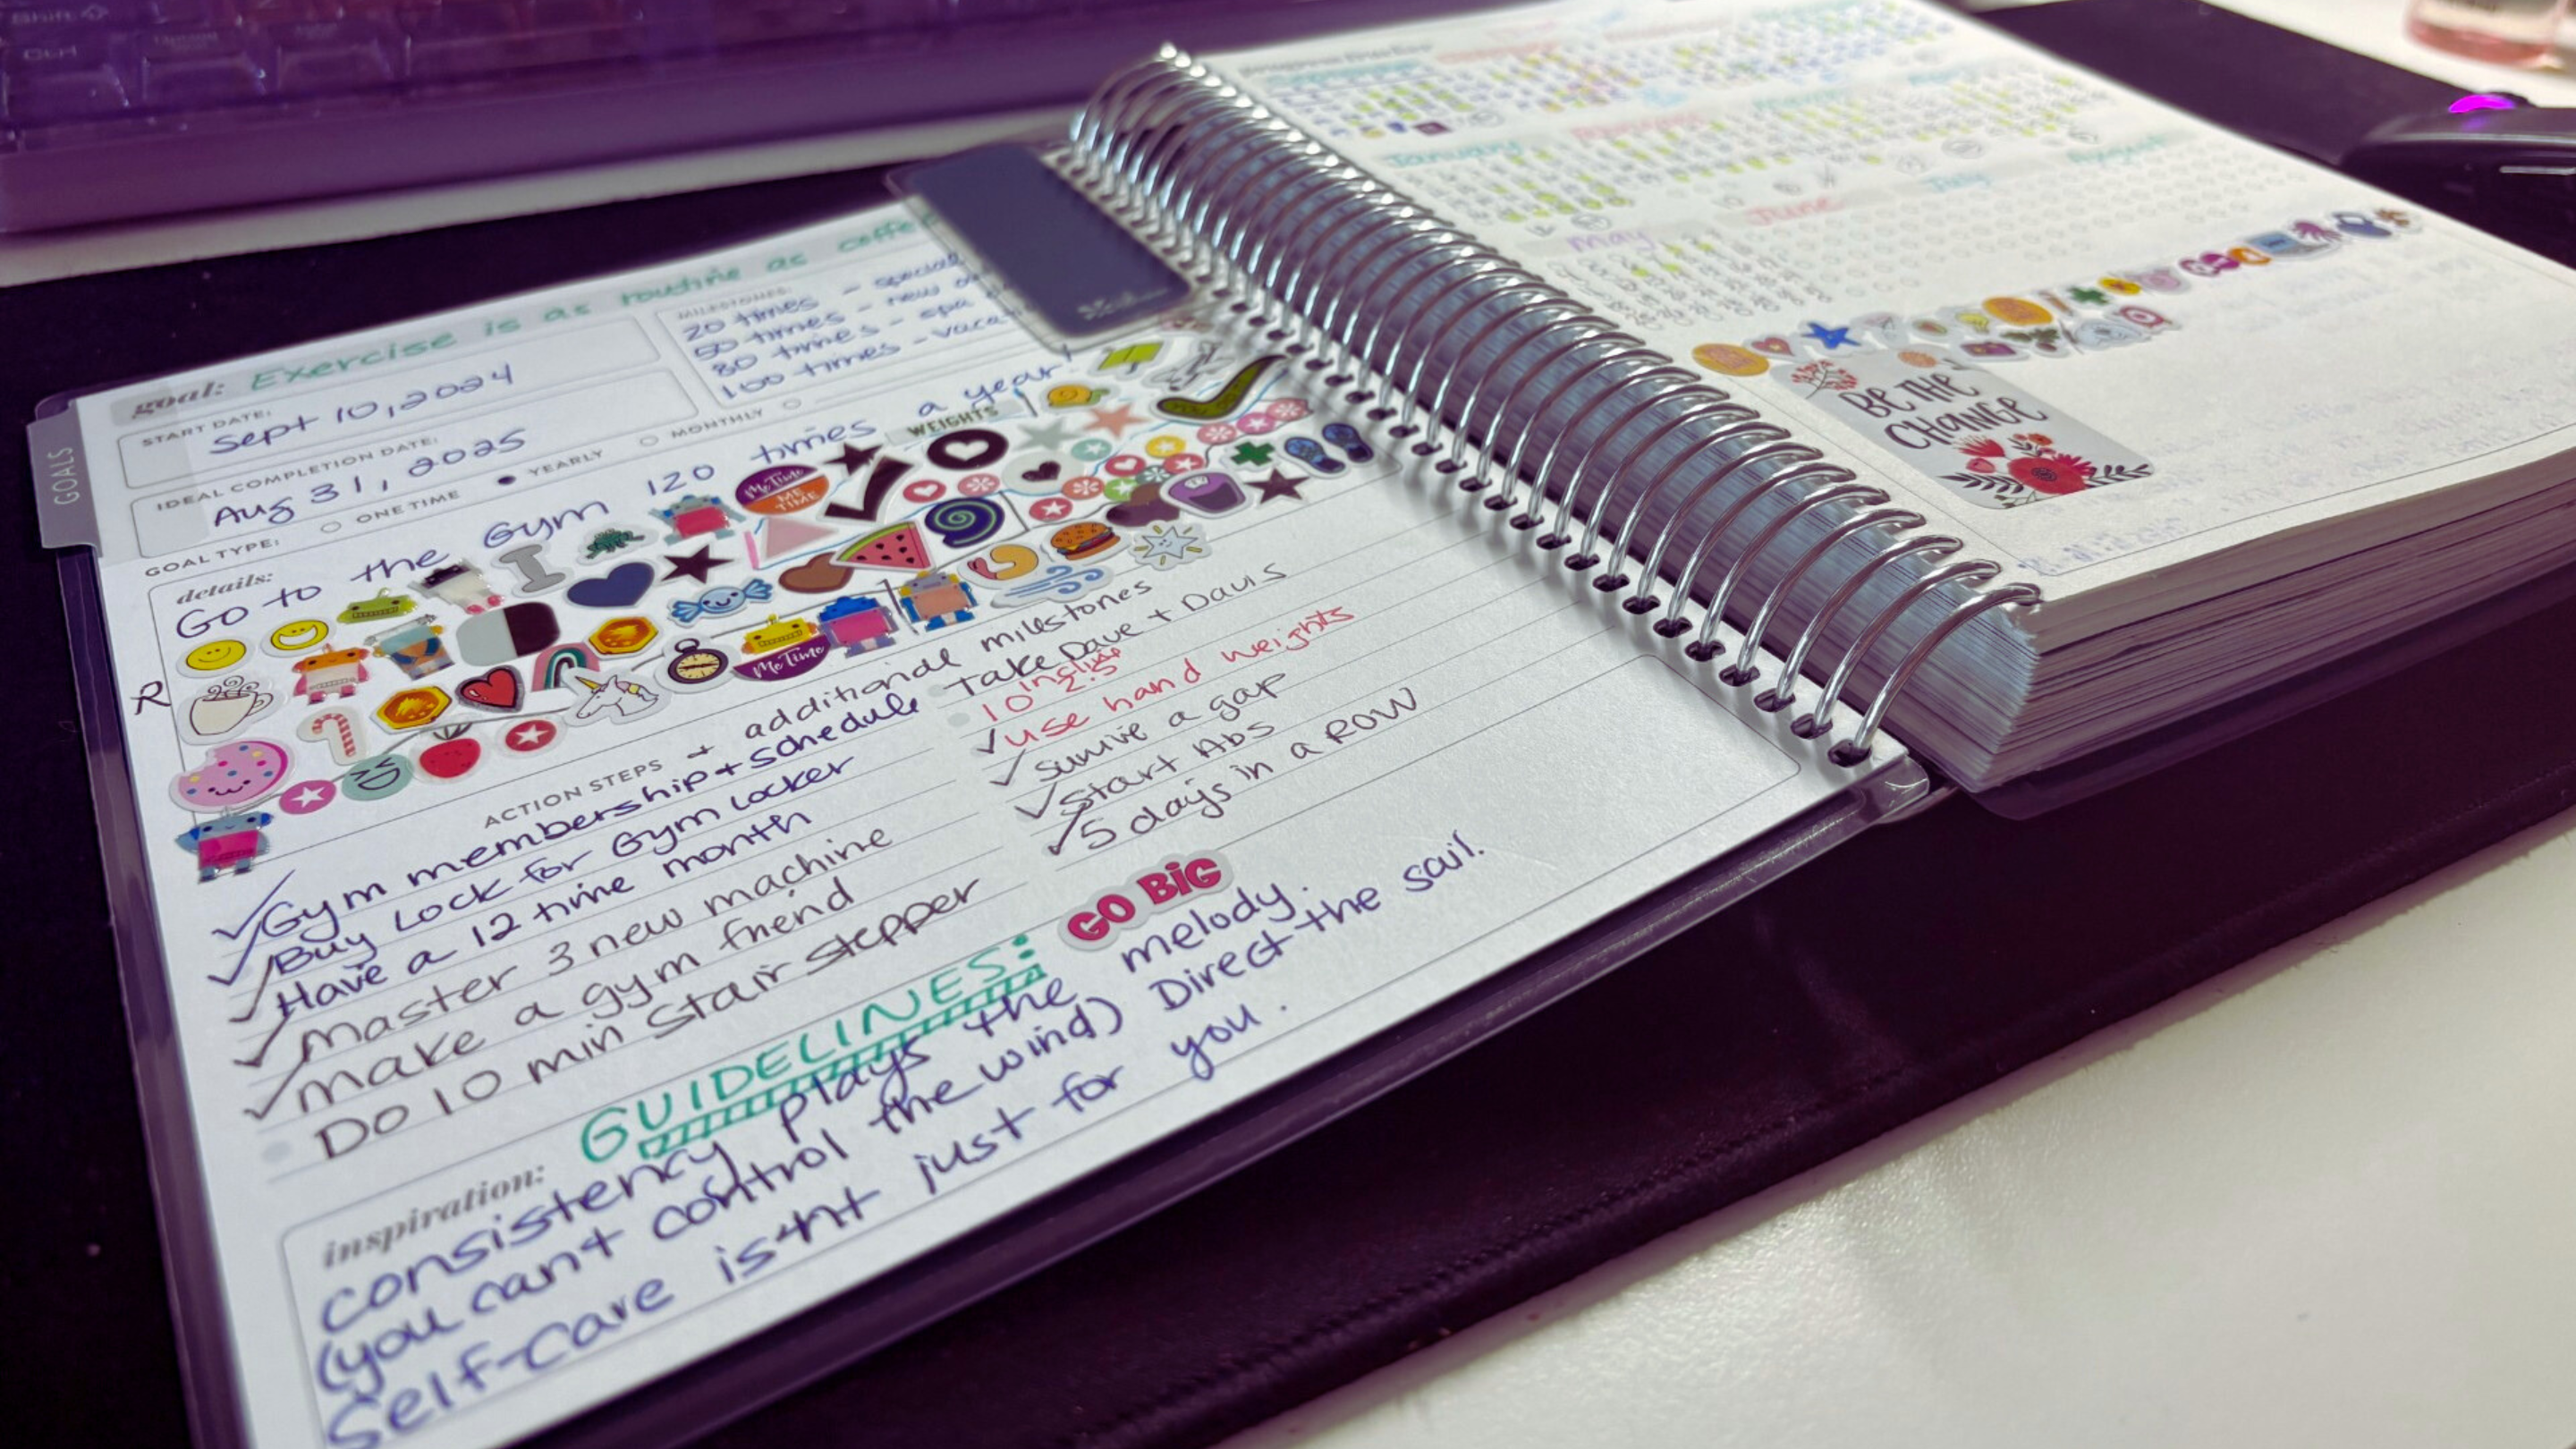 Shift
Ctrl
GOALS
goal: Exercise is as routine as coffe
START DATE:
Sept 10, 2024
IDEAL COMPLETION DATE:
Aug 31, 2025
GOAL TYPE: ONE TIME YEARLY MONTHLY
MILESTONES:
20 times - special
50 times - new
80 times - spa
100 times - vaca
details:
Go to the Gym 120 times a year!
WEIGHTS
Me Time
ME TIME
Me Time
R
ACTION STEPS + additional milestones
Gym membership + schedule
Buy Lock for Gym Locker
Have a 12 time month
Master 3 new machine
make a gym friend
Do 10 min Stair stepper
Take Dave + Davis
10 incline 2.5
use hand weights
survive a gap
start Abs
5 days in a ROW
GO BiG
GUIDELINES:
inspiration:
consistency plays the melody.
(you can't control the wind) Direct the sail.
Self-care isn't just for you.
January
May
June
July
August
BE THE
CHANGE